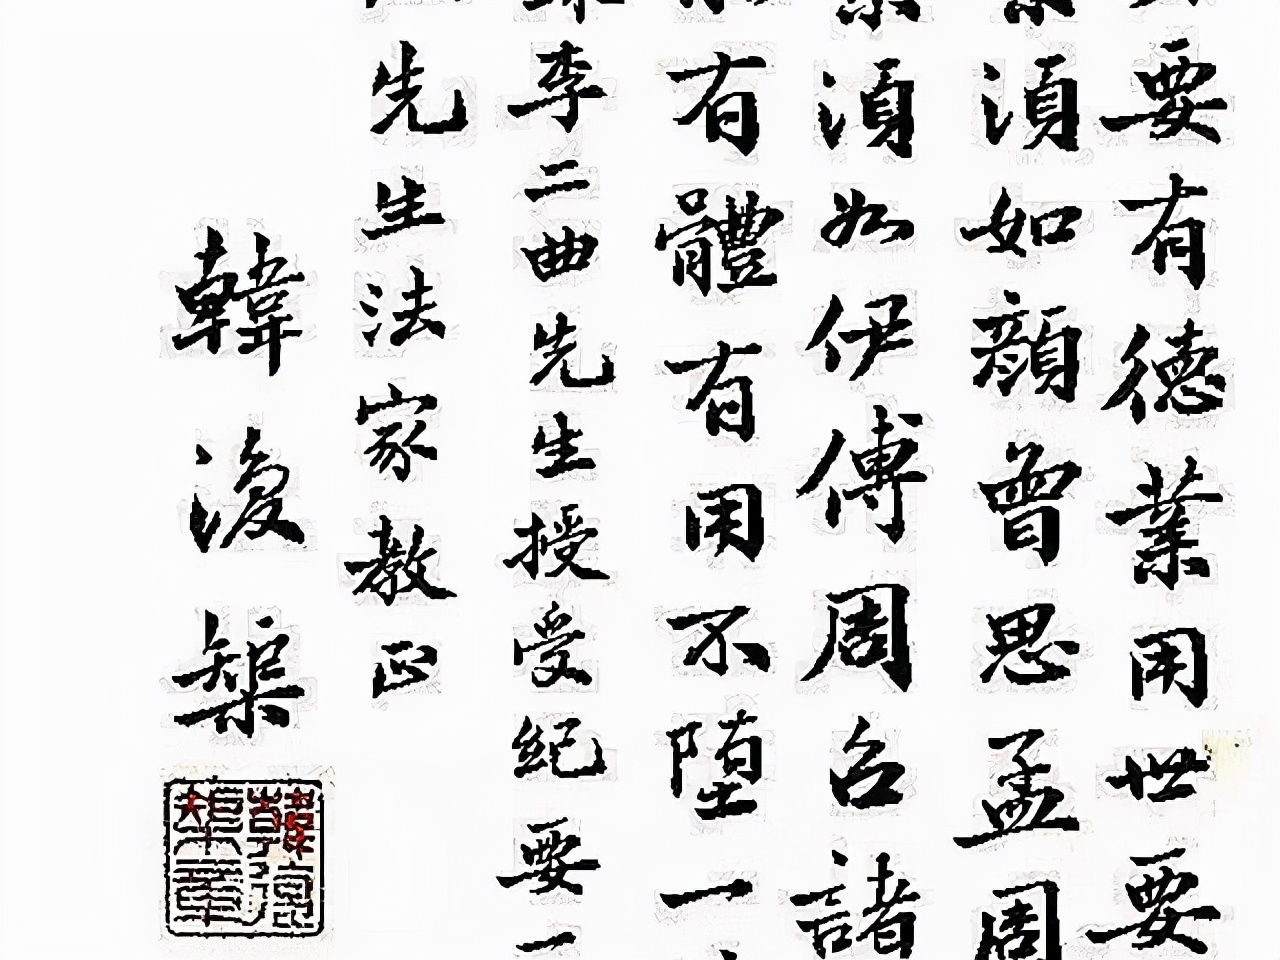 要有德業用世要
須如顏曾思孟周
須如伊傅周召諸
有體有用不墮一
李二曲先生授受紀要一
先生法家教正
韓復榘